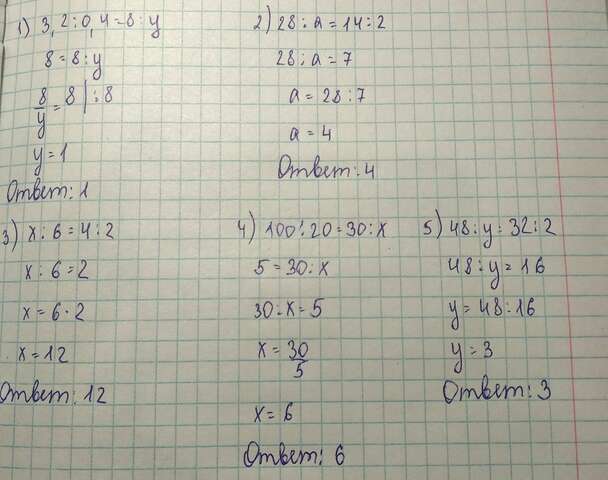 1) 3,2 : 0,4 = 8 : y
8 = 8 : y
8/y = 8 | : 8
y = 1
Ответ: 1
2) 28 : a = 14 : 2
28 : a = 7
a = 28 : 7
a = 4
Ответ: 4
3) x : 6 = 4 : 2
x : 6 = 2
x = 6 · 2
x = 12
Ответ: 12
4) 100 : 20 = 30 : x
5 = 30 : x
30 : x = 5
x = 30/5
x = 6
Ответ: 6
5) 48 : y = 32 : 2
48 : y = 16
y = 48 : 16
y = 3
Ответ: 3